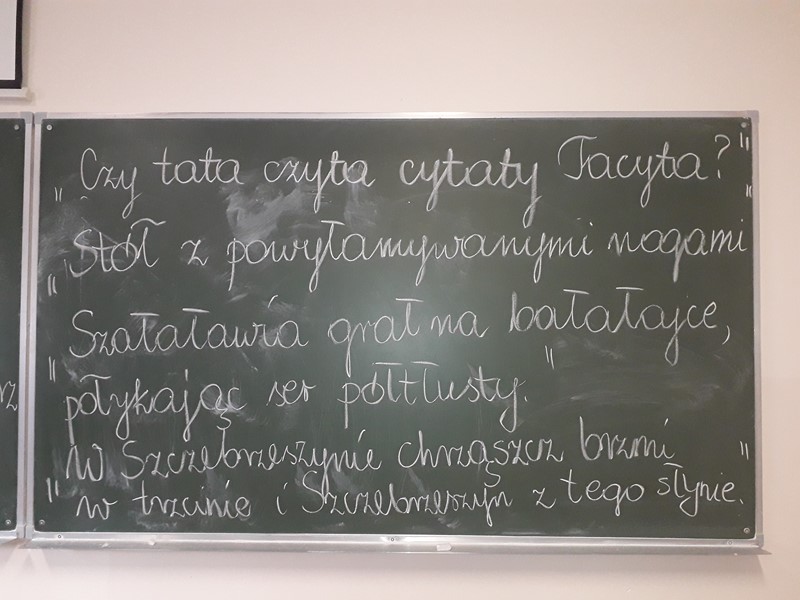 "Czy tata czyta cytaty Tacyta?"
"Stół z powyłamywanymi nogami"
"Szałaławia grał na bałałajce,
połykając ser półtłusty."
"W Szczebrzeszynie chrząszcz brzmi
w trzcinie i Szczebrzeszyn z tego słynie."
rz